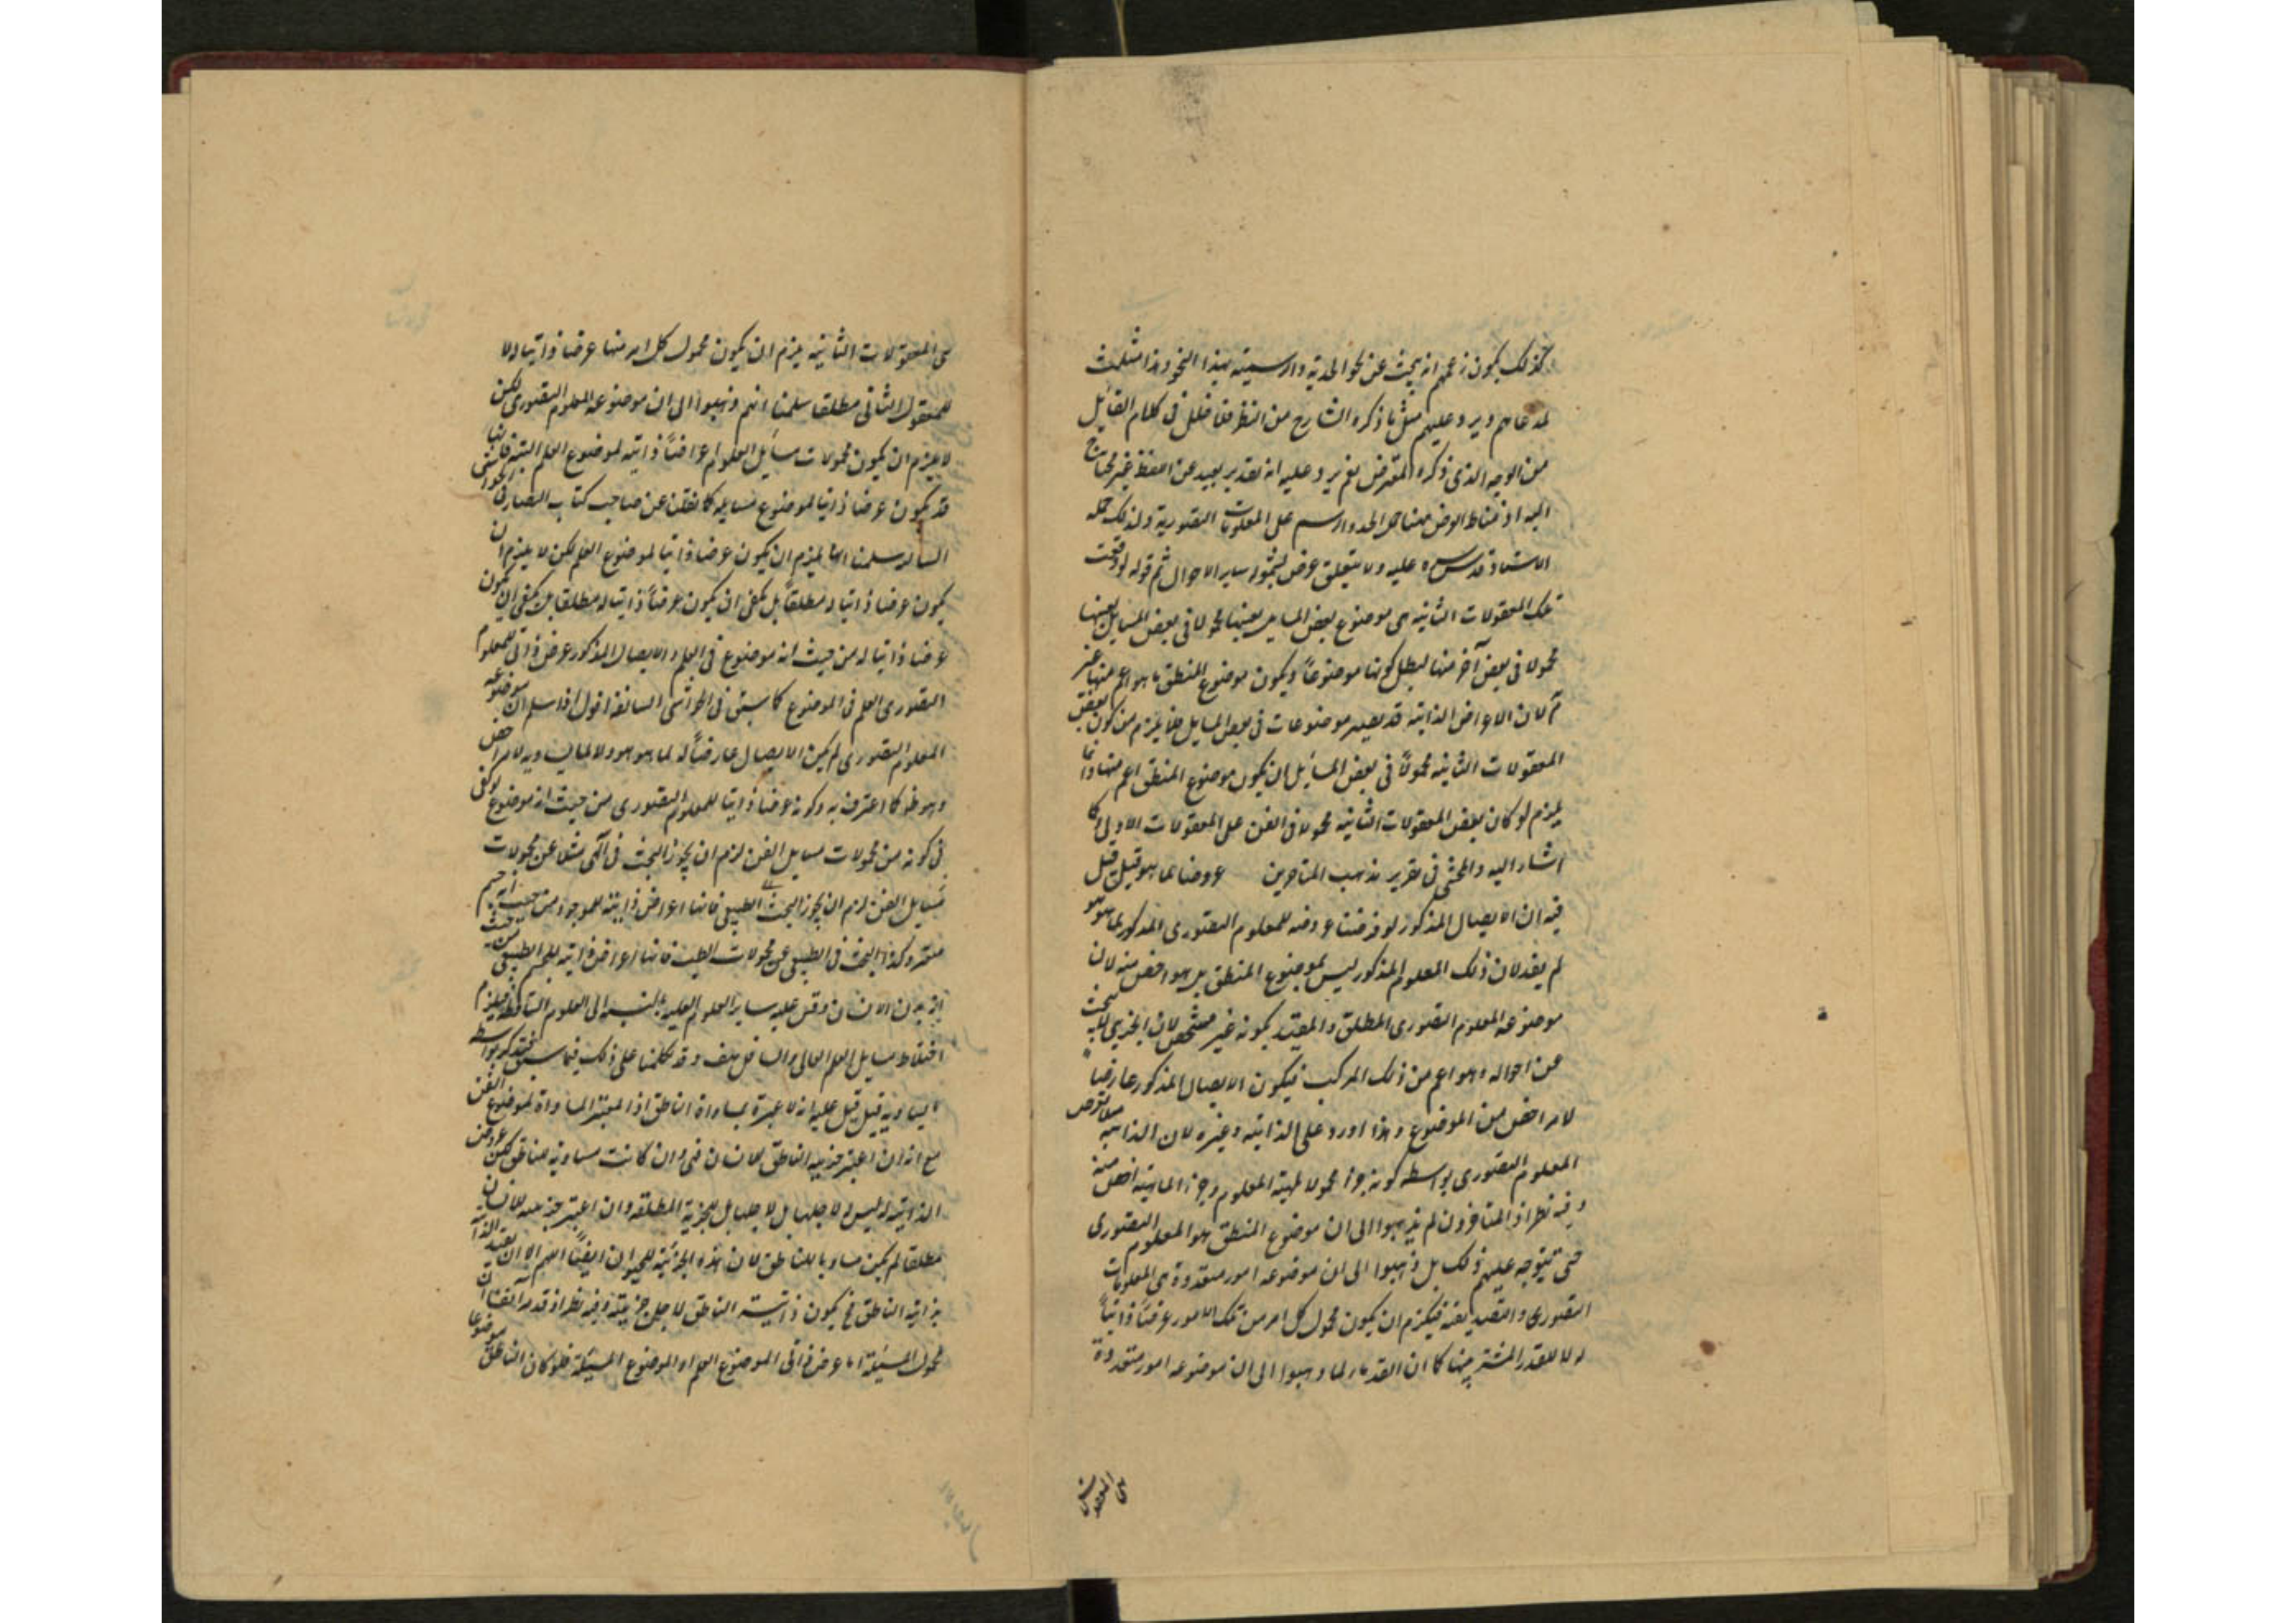 كذلك يكون زعمهم انه يبحث عن نحو الحدية والرسمية بهذا النحو وهذا مثلث
لمدعاهم ويرد عليهم مثل ما ذكره الشارح من النظر فلا خلل في كلام القايل
من الوجه الذي ذكره المعترض نعم يرد عليه انه تقدير بعيد عن اللفظ غير محتاج
اليه اذ مناط الغرض هنا حمل الحد والرسم على المعلومات التصورية ولذلك حمله
الاستاد قدس سره عليه ولا يتعلق غرض بشموله ساير الاحوال ثم قوله لو وقعت
تلك المعقولات الثانية هي موضوع بعض المسايل بعينها محمولا في بعض المسايل بعينها
محمولا في بعض آخر منها لبطل كونها موضوعا ويكون موضوع المنطق ما هو اعم منها غير
تم لان الاعراض الذاتية قد يصير موضوعات في بعض المسايل فلا يلزم من كون بعض
المعقولات الثانية محمولا في بعض المسايل ان يكون موضوع المنطق اعم منها وانما
يلزم لو كان بعض المعقولات الثانية محمولا في الفن على المعقولات الاولى كما
اشار اليه والمحشي في تقرير مذهب المتاخرين عروضا لما هو قيل قيل
فيه ان الايصال المذكور لو فرضنا عروضه للمعلوم التصوري المذكور لما هو هو
لم يفد لان ذلك المعلوم المذكور ليس بموضوع المنطق بل هو اخص منه لان
موضوعه المعلوم التصوري المطلق والمقيد بكونه غير مشخص لان الجزيي لا يبحث
عن احواله وهو اعم من ذلك المركب فيكون الايصال المذكور عارضا
لامر اخص من الموضوع وهذا اورد على الذاتية وغيره لان الذاتية
المعلوم التصوري بواسطه كونه جزءا محمولا لمهية المعلوم وجزء الماهية اخص منه
وفيه نظر اذ المتاخرون لم يذهبوا الى ان موضوع المنطق هو المعلوم التصوري
حتى يتوجه عليهم ذلك بل ذهبوا الى ان موضوعه امور متعددة هي المعلومات
التصوري والتصديقية فيلزم ان يكون محمول كل امر من تلك الامور عرضا ذاتيا
له لا للقدر المشترك بينها كما ان القدماء لما ذهبوا الى ان موضوعه امور متعددة
هي المعقولات
هي المعقولات الثانية يلزم ان يكون محمول كل امر منها عرضا ذاتيا له لا
للمعقول الثاني مطلقا سلمنا انهم ذهبوا الى ان موضوعه المعلوم التصوري لكن
لا يلزم ان يكون محمولات مسايل العلوم اعراضا ذاتية لموضوع العلم البتة فانها
قد يكون عرضا ذاتيا لموضوع مسايله كما نقلنا عن صاحب كتاب البصاير في الحواشي
السالفة سلمنا انها يلزم ان يكون عرضا ذاتيا لموضوع العلم لكن لا يلزم ان
يكون عرضا ذاتيا له مطلقا بل يكفي ان يكون عرضا ذاتيا له مطلقا بل يكفي ان يكون
عرضا ذاتيا له من حيث انه موضوع في العلم والايصال المذكور عرض ذاتي للمعلوم
التصوري العلم في الموضوع كما سبق في الحواشي السالفة اقول اذا سلم ان موضوعه
المعلوم التصوري لم يكن الايصال عارضا له لما هو هو ولا لما يساويه لامر اخص
وهو ظ كما اعترف به وكونه عرضا ذاتيا للمعلوم التصوري من حيث انه موضوع لو كفى
في كونه من محمولات مسايل الفن لزم ان يجوز البحث في الالهي مثلا عن محمولات
مسايل الفن لزم ان يجوز البحث في الطبيعي فانها اعراض ذاتية للموجود من حيث انه جسم
متغير وكذا البحث في الطبيعي عن محمولات الطب فانها اعراض ذاتية للجسم الطبيعي من حيث
انه بدن الانسان وقس عليه ساير العلوم العالية بالنسبة الى العلوم السافلة فيلزم
اختلاط مسايل العلم العالي والسافل هف وقد تكلمنا على ذلك فيما سبق فتذكر بواسطه
المساويه قيل قيل عليه انه لا عبرة بمساواة الناطق اذ المعتبر المساواة لموضوع الفن
مع انه ان اعتبر جزييه الناطق للانسان فهي وان كانت مساويه للناطق لكن عروض
الذاتية له ليس لاجلها بل لاجل بل للجزية المطلقة وان اعتبر جزييه للانسان
مطلقا لم يكن مساويا للناطق لان هذه الجزئية للحيوان ايضا اللهم الا ان يقيد الذا
بذاتية الناطق فح يكون ذاتيته الناطق لاجل جزييته وفيه نظر اذ قد مر آنفا ان
محمول المسئلة اما عرض ذاتي لموضوع العلم او لموضوع المسئلة فلو كان الناطق موضوعا